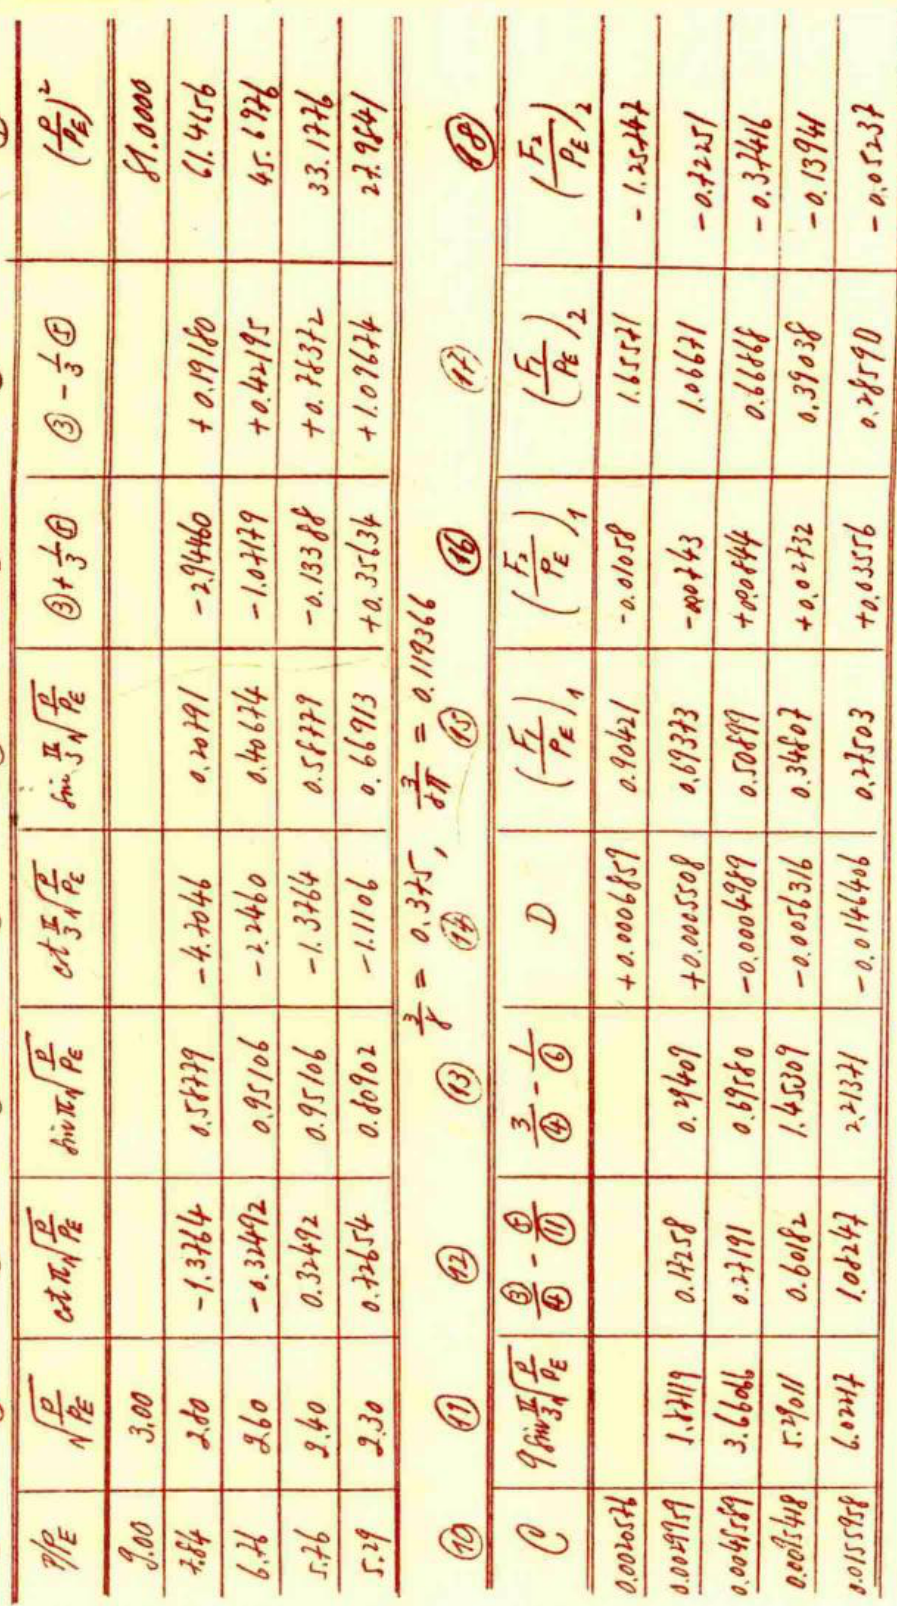 P/PE √(P/PE) cot π√(P/PE) sin π√(P/PE) cot π/3 √(P/PE) sin π/3 √(P/PE) ③+1/3⑤ ③-1/3⑤ (P/PE)²
9.00 3.00 81.0000
7.84 2.80 -1.3764 0.58779 -4.7046 0.20791 -2.94460 +0.19180 61.4656
6.76 2.60 -0.32492 0.95106 -2.2460 0.40674 -1.07179 +0.42195 45.6976
5.76 2.40 0.32492 0.95106 -1.3764 0.58779 -0.13388 +0.78372 33.1776
5.29 2.30 0.72654 0.80902 -1.1106 0.66913 +0.35634 +1.09674 27.9841
3/8 = 0.375, 3/8π = 0.119366
⑩ ⑪ ⑫ ⑬ ⑭ ⑮ ⑯ ⑰ ⑱
C 9 sin π/3 √(P/PE) ③/④ - ⑤/⑪ 3/④ - 1/⑥ D (F1/PE)1 (F2/PE)1 (F1/PE)2 (F2/PE)2
0.0020576 +0.0006859 0.90421 -0.01058 1.65571 -1.25747
0.0029959 1.87119 0.17258 0.29409 +0.0005508 0.69373 -0.00743 1.06671 -0.72251
0.0046589 3.66066 0.27191 0.69580 -0.0004989 0.50899 +0.00844 0.66868 -0.37416
0.0095418 5.29011 0.60182 1.45309 -0.0056316 0.34807 +0.02732 0.39038 -0.13941
0.0155958 6.02217 1.08247 2.21371 -0.0146406 0.27503 +0.03556 0.28590 -0.05237